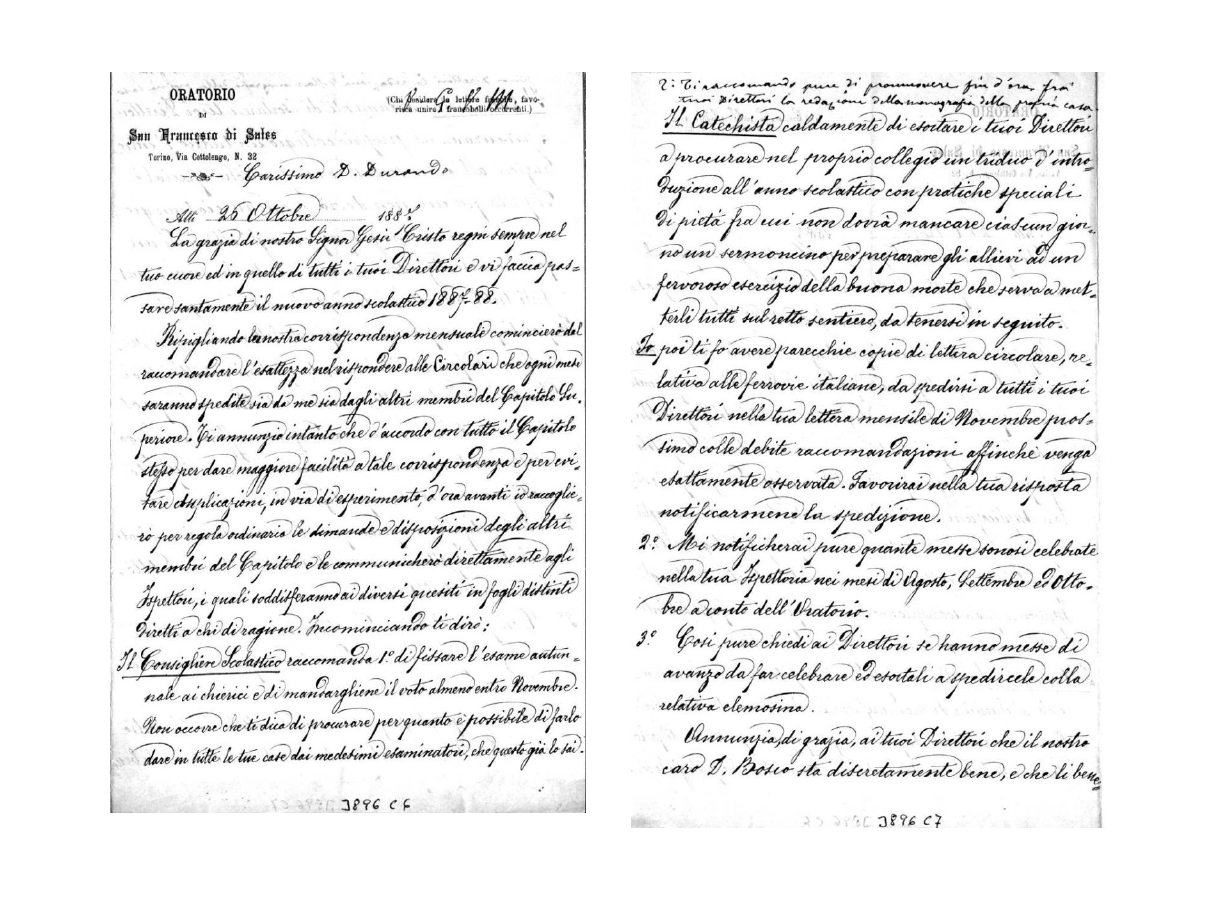 ORATORIO
DI
San Francesco di Sales
Torino, Via Cottolengo, N. 32
(Chi desidera la lettera franca, favo-
risca unire i francobolli occorrenti.)
Carissimo D. Durando
Alli 26 Ottobre 1887
La grazia di nostro Signor Gesù Cristo regni sempre nel
tuo cuore ed in quello di tutti i tuoi Direttori e vi faccia pas=
sare santamente il nuovo anno scolastico 1887-88.
Ripigliando la nostra corrispondenza mensuale comincierò dal
raccomandare l'esattezza nel rispondere alle Circolari che ogni mese
saranno spedite sia da me sia dagli altri membri del Capitolo Su-
periore. Ti annunzio intanto che d'accordo con tutto il Capitolo
stesso per dare maggiore facilità a tale corrispondenza e per evi-
tare complicazioni, in via di esperimento, d'ora avanti io raccoglie-
rò per regola ordinaria le dimande e disposizioni degli altri
membri del Capitolo e le communicherò direttamente agli
Ispettori, i quali soddisferanno ai diversi quesiti in fogli distinti
diretti a chi di ragione. Incominciando ti dirò:
Il Consigliere Scolastico raccomanda 1° di fissare l'esame autun-
nale ai chierici e di mandargliene il voto almeno entro Novembre.
Non occorre che ti dica di procurare per quanto è possibile di farlo
dare in tutte le tue case dai medesimi esaminatori, che questo già lo sai.
J896 C6
2: Ti raccomando pure di promuovere fin d'ora fra i
tuoi Direttori la redazione della monografia della propria casa.
Il Catechista caldamente di esortare i tuoi Direttori
a procurare nel proprio collegio un triduo d'intro-
duzione all'anno scolastico con pratiche speciali
di pietà fra cui non dovrà mancare ciascun gior-
no un sermoncino per preparare gli allievi ad un
fervoroso esercizio della buona morte che serva a met-
terli tutti sul retto sentiero, da tenersi in seguito.
Io poi ti fo avere parecchie copie di lettera circolare, re-
lativa alle ferrovie italiane, da spedirsi a tutti i tuoi
Direttori nella tua lettera mensile di Novembre pros-
simo colle debite raccomandazioni affinchè venga
esattamente osservata. Favorirai nella tua risposta
notificarmene la spedizione.
2° Mi notificherai pure quante messe sonosi celebrate
nella tua Ispettoria nei mesi di Agosto, Settembre ed Otto-
bre a conto dell'Oratorio.
3° Così pure chiedi ai Direttori se hanno messe di
avanzo da far celebrare ed esortali a spedircele colla
relativa elemosina.
Annunzia, di grazia, ai tuoi Direttori che il nostro
caro D. Bosco sta discretamente bene, e che li bene
J896 C7